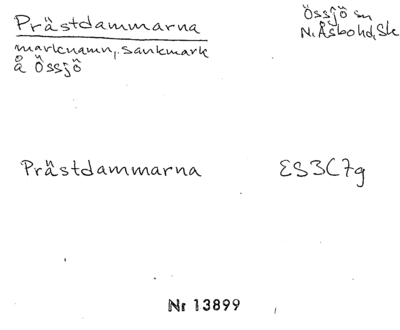 Prästdammarna
Össjö sn
N. Åsbo hd, Sk
marknamn, sankmark
å Össjö
Prästdammarna
ES3C7g
Nr 13899